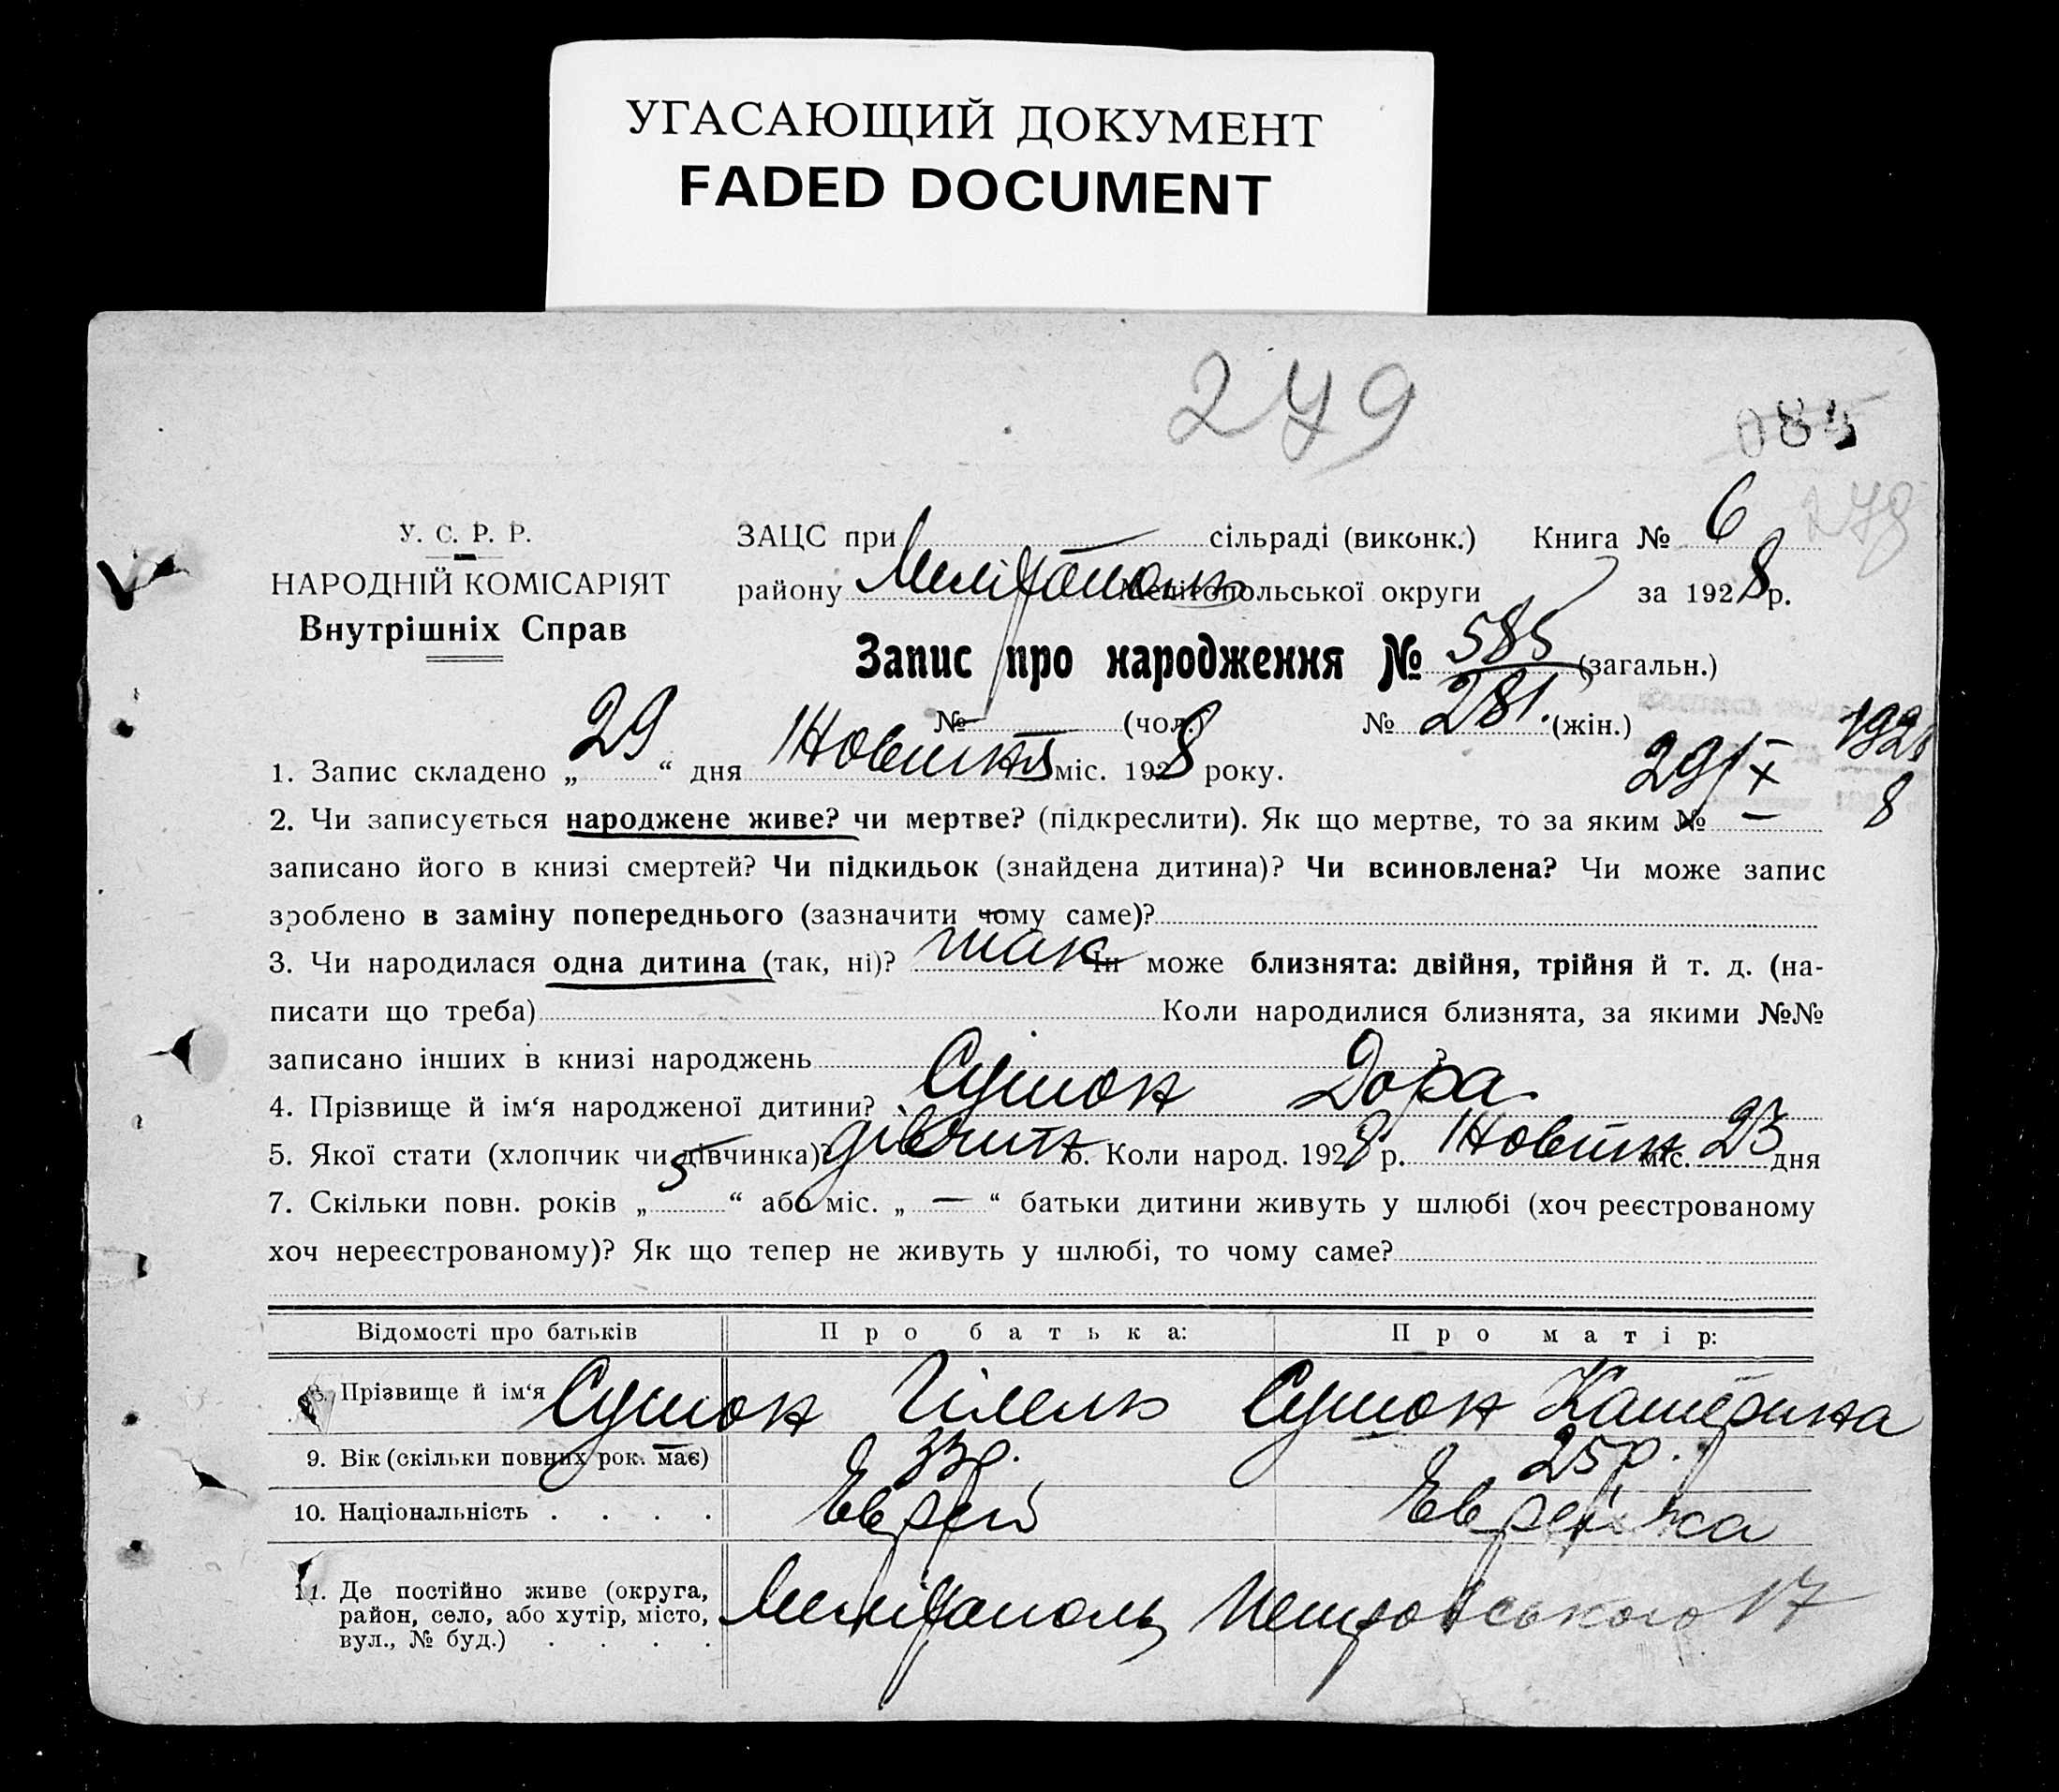 УГАСАЮЩИЙ ДОКУМЕНТ
FADED DOCUMENT
279
279
У. С. Р. Р.
НАРОДНІЙ КОМІСАРІЯТ
Внутрішніх Справ
ЗАЦС при сільраді (виконк.) Книга № 6
району Мелітополь Мелітопольської округи за 1928 р.
Запис про народження № 585 (загальн.)
№ — (чол.) № 281. (жін.)
29/X 1928
1. Запис складено „ 29 “ дня Жовтня міс. 1928 року.
8
2. Чи записується народжене живе? чи мертве? (підкреслити). Як що мертве, то за яким № —
записано його в книзі смертей? Чи підкидьок (знайдена дитина)? Чи всиновлена? Чи може запис
зроблено в заміну попереднього (зазначити чому саме)?
3. Чи народилася одна дитина (так, ні)? так Чи може близнята: двійня, трійня й т. д. (на-
писати що треба) Коли народилися близнята, за якими №№
записано інших в книзі народжень
4. Прізвище й ім‘я народженої дитини? Сушон Дора
5. Якої стати (хлопчик чи дівчинка)? дівчин 6. Коли народ. 1928 р. Жовтн міс. 23 дня
7. Скільки повн. років „ 5 “ або міс. „ — “ батьки дитини живуть у шлюбі (хоч реєстрованому
хоч нереєстрованому)? Як що тепер не живуть у шлюбі, то чому саме?
Відомості про батьків Про батька: Про матір:
8. Прізвище й ім‘я Сушон Гілель Сушон Катерина
9. Вік (скільки повних рок. має) 33р. 25р.
10. Національність . . . . Еврей Еврейка
11. Де постійно живе (округа,
район, село, або хутір, місто, Мелітополь Петровського 17
вул., № буд.) . . . .